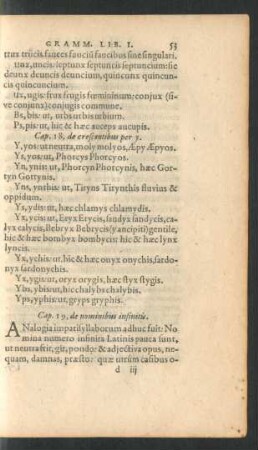 GRAMM. LIB. I. 53
trux trucis, fauces fauciū faucibus sine singulari.
unx, uncis: septunx septuncis septuncium: sic
deunx deuncis deuncium, quincunx quincun-
cis quincuncium.
ux, ugis: frux frugis fœmininum: conjux (si-
ve conjunx) conjugis commune.
Bs, bis: ut, urbs urbis urbium.
Ps, pis: ut, hic & hæc auceps aucupis.
Cap. 18. de crescentibus per y.
Y, yos: ut neutra, moly molyos, Æpy Æpyos.
Ys, yos: ut, Phorcys Phorcyos.
Yn, ynis: ut, Phorcyn Phorcynis, hæc Gor-
tyn Gortynis.
Yns, ynthis: ut, Tiryns Tirynthis fluvius &
oppidum.
Ys, ydis: ut, hæc chlamys chlamydis.
Yx, ycis: ut, Eryx Erycis, sandyx sandycis, ca-
lyx calycis, Bebryx Bebrycis (y ancipiti) gentile,
hic & hæc bombyx bombycis: hic & hæc lynx
lyncis.
Yx, ychis: ut, hic & hæc onyx onychis, sardo-
nyx sardonychis.
Yx, ygis: ut, oryx orygis, hæc styx stygis.
Ybs, ybis: ut, hic chalybs chalybis.
Yps, yphis: ut, gryps gryphis.
Cap. 19. de nominibus infinitis.
ANalogia imparisyllaborum adhuc fuit: No
mina numero infinita Latinis pauca sunt,
ut neutra fit, git, pondo: & adjectiva opus, ne-
quam, damnas, præsto: quæ utrùm casibus o-
d iij